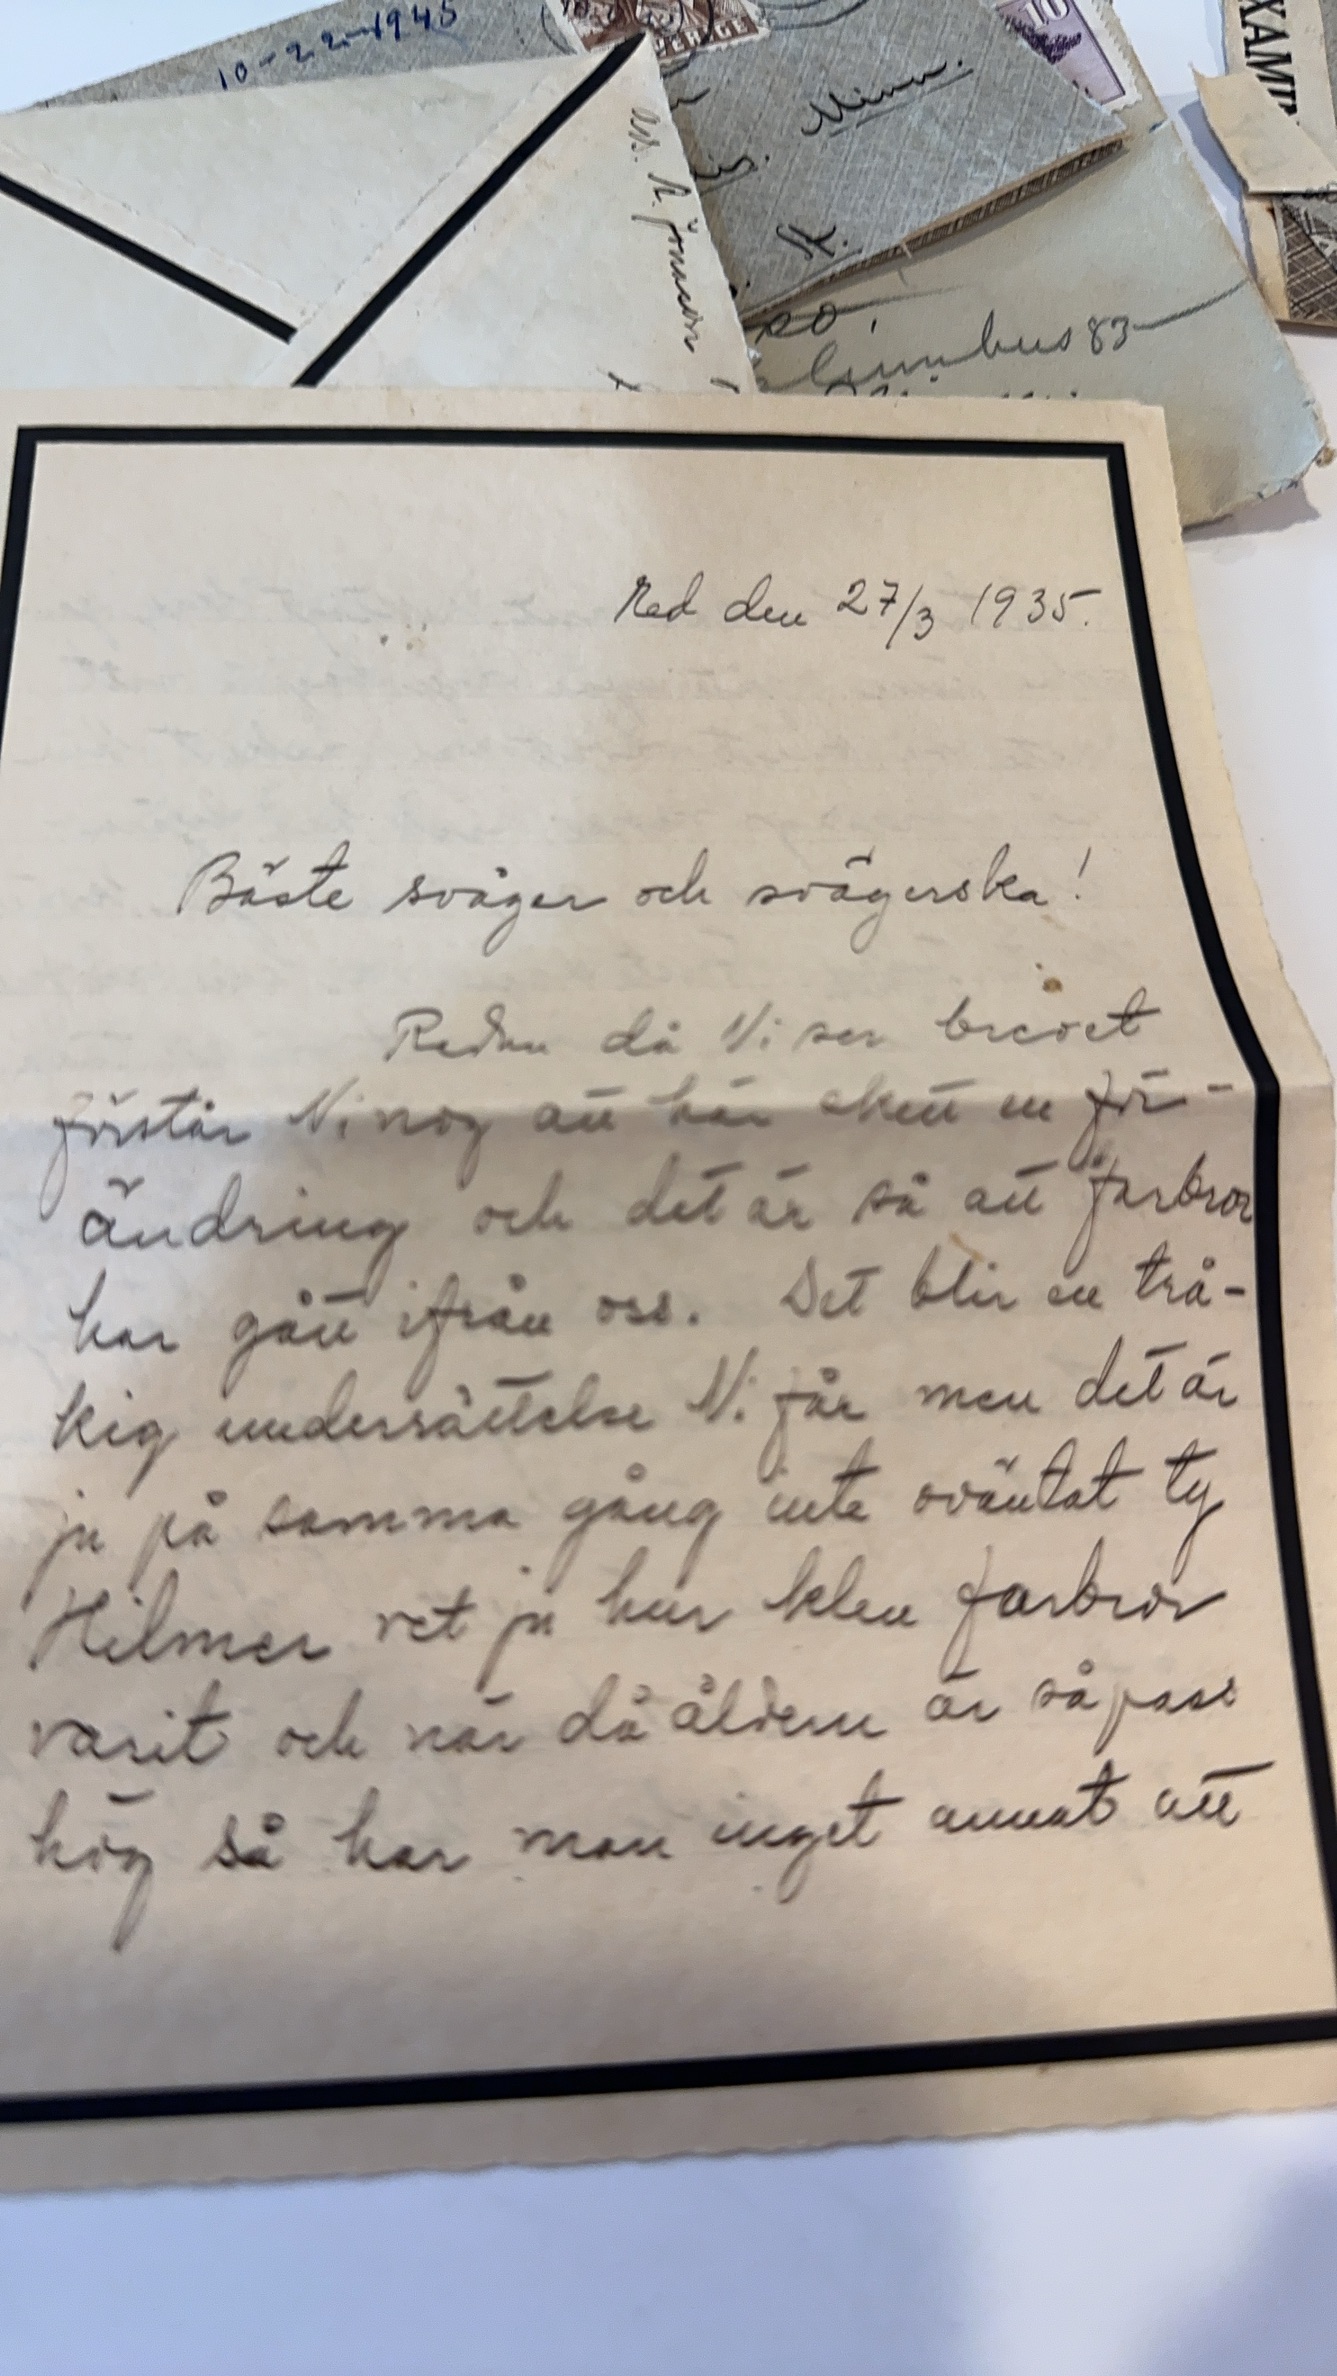 10-22-1945
SVERIGE
10
Minn.
St.
XAMIN
avs. A. Jönsson
Columbus 83
Red den 27/3 1935.
Bäste svåger och svägerska!
Redan då Ni ser brevet
förstår Ni nog att här skett en för-
ändring och det är så att farbror
har gått ifrån oss. Det blir en trå-
kig undersättelse Ni får men det är
ju på samma gång inte oväntat ty
Hilmer vet ju hur klen farbror
varit och när då åldern är så pass
hög så har man inget annat att